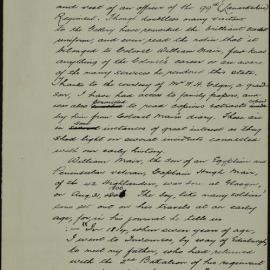 and vest of an officer of the 99th (Lanarkshire)
Regiment. Though doubtless many visitors
to the Gallery have remarked the brilliant scarlet
uniform, and even read the note that it
belonged to Colonel William Mair, few know
anything of the Colonel's career or are aware
of the many services he rendered this state.
Thanks to the courtesy of Mr H. H. Edgar, a grand
son, I have had access to family papers, and
was also permitted to read copious extracts
by him from Colonel Mair's diary. These are
in instances of great interest as they
throw light on several incidents connected
with our early history.
William Mair, the son of an Egyptian and
Peninsular veteran, Captain Hugh Mair,
of the 42 Highlanders, was born at Glasgow,
on Aug. 31, 1806. The boy, like many soldiers'
sons set out on his travels at an early
age, for in his journal he tells us
:— "In 1814, when seven years of age,
I went to Inverness, by way of Edinburgh,
to meet my father, who had returned
with the 2nd Battalion of his regiment